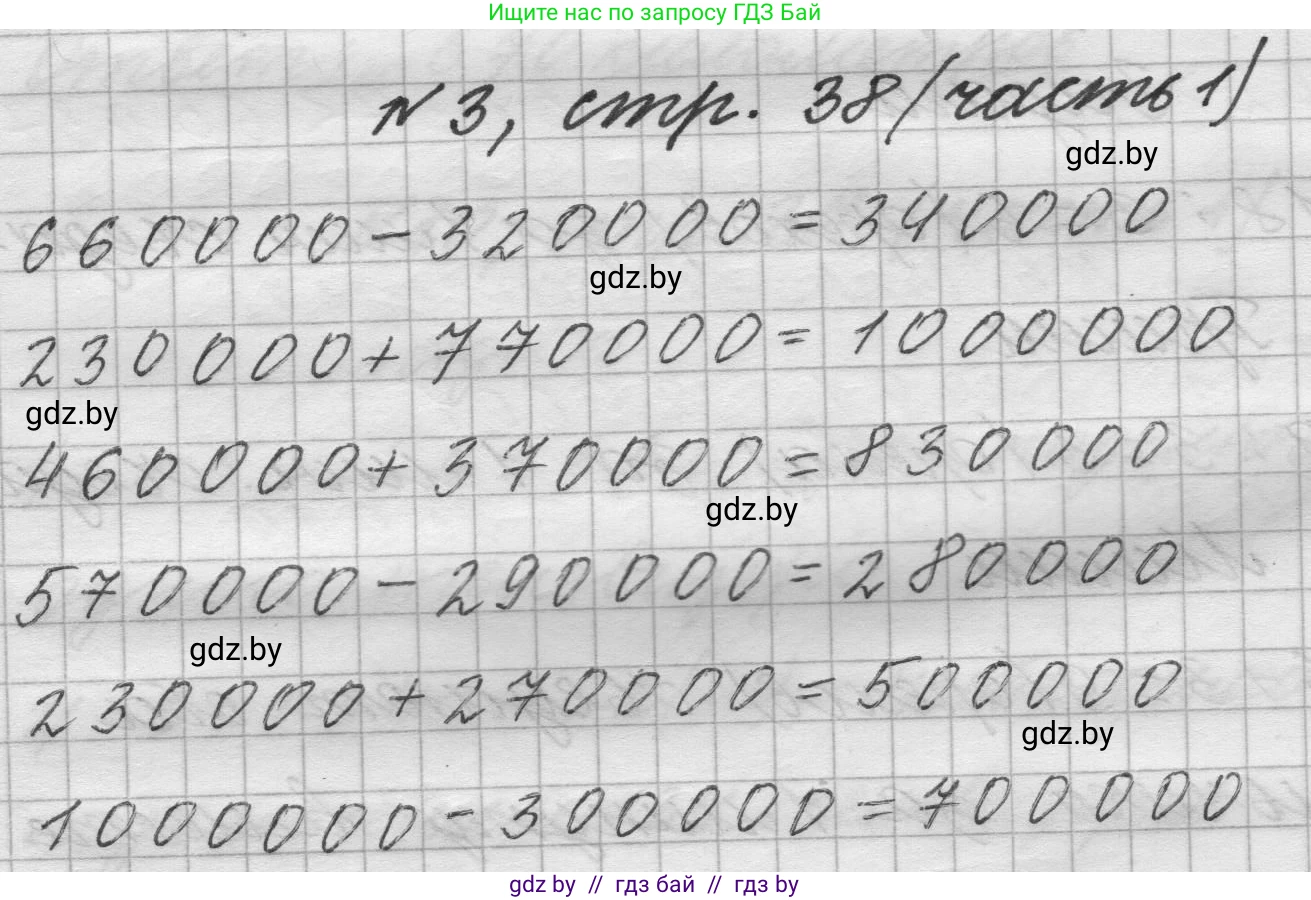 Ищите нас по запросу ГДЗ Бай
№ 3, стр. 38 (часть 1)
gdz.by
660000 - 320000 = 340000
gdz.by
230000 + 770000 = 1000000
gdz.by
460000 + 370000 = 830000
gdz.by
570000 - 290000 = 280000
gdz.by
230000 + 270000 = 500000
gdz.by
1000000 - 300000 = 700000
gdz by // гдз бай // гдз by